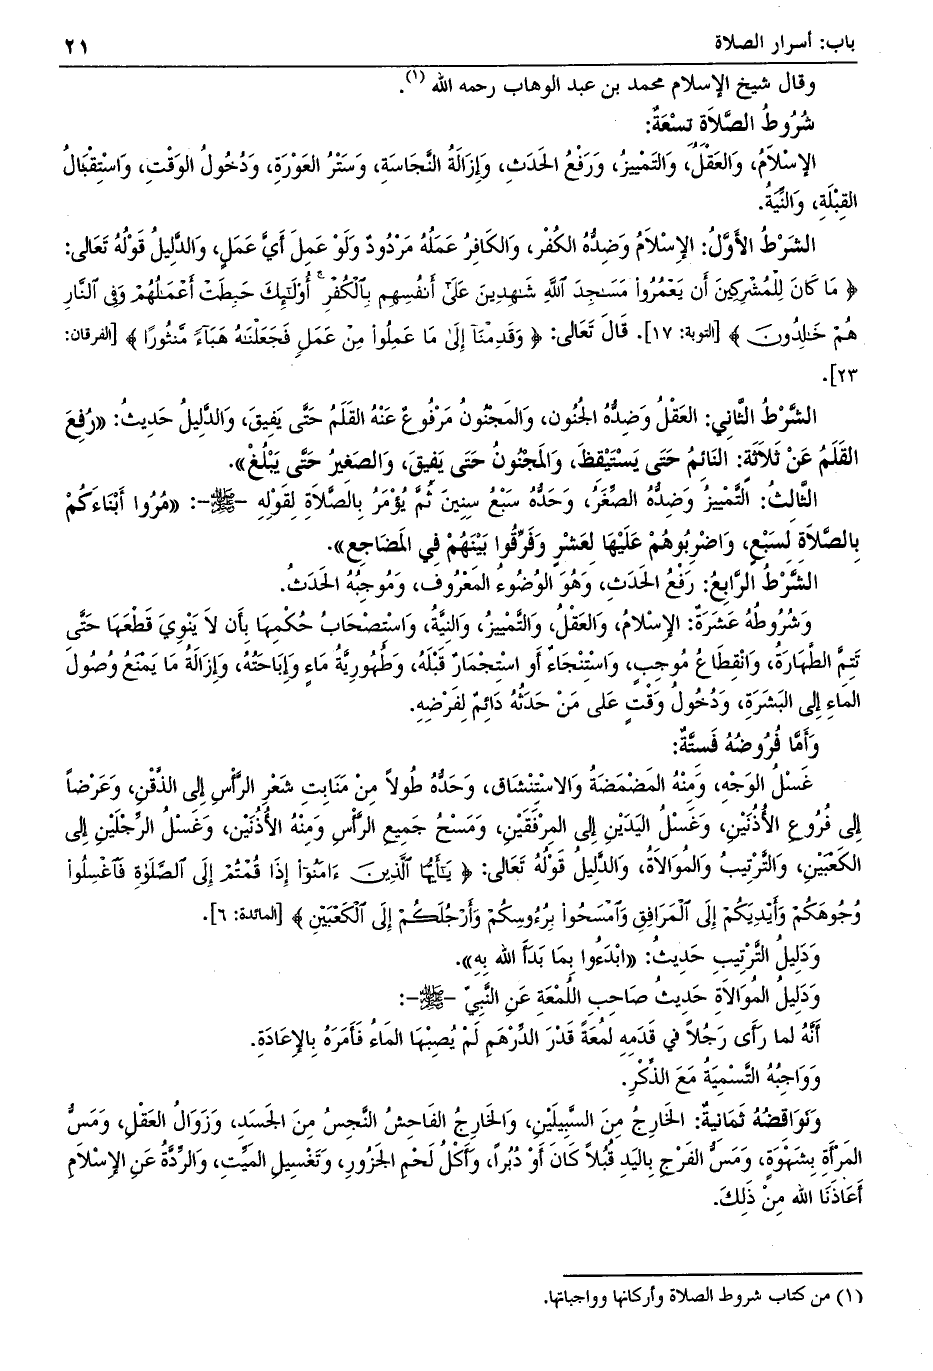 باب: أسرار الصلاة
٢١
وقال شيخ الإسلام محمد بن عبد الوهاب رحمه الله (١).
شُرُوطُ الصَّلَاةِ تِسْعَةٌ:
الإِسْلَامُ، وَالعَقْلُ، وَالتَّمْيِيزُ، وَرَفْعُ الحَدَثِ، وَإِزَالَةُ النَّجَاسَةِ، وَسَتْرُ العَوْرَةِ، وَدُخُولُ الوَقْتِ، وَاسْتِقْبَالُ
القِبْلَةِ، وَالنِّيَّةُ.
الشَّرْطُ الأَوَّلُ: الإِسْلَامُ وَضِدُّهُ الكُفْر، وَالكَافِرُ عَمَلُهُ مَرْدُودٌ وَلَوْ عَمِلَ أَيَّ عَمَلٍ، وَالدَّلِيلُ قَوْلُهُ تَعَالَى:
﴿ مَا كَانَ لِلْمُشْرِكِينَ أَن يَعْمُرُوا۟ مَسَـٰجِدَ ٱللَّهِ شَـٰهِدِينَ عَلَىٰٓ أَنفُسِهِم بِٱلْكُفْرِ ۚ أُو۟لَـٰٓئِكَ حَبِطَتْ أَعْمَـٰلُهُمْ وَفِى ٱلنَّارِ
هُمْ خَـٰلِدُونَ ﴾ [التوبة: ١٧]. قَالَ تَعَالَى: ﴿ وَقَدِمْنَآ إِلَىٰ مَا عَمِلُوا۟ مِنْ عَمَلٍ فَجَعَلْنَـٰهُ هَبَآءً مَّنثُورًا ﴾ [الفرقان:
٢٣].
الشَّرْطُ الثَّانِي: العَقْلُ وَضِدُّهُ الجُنُون، وَالمَجْنُونُ مَرْفُوعٌ عَنْهُ القَلَمُ حَتَّى يَفِيقَ، وَالدَّلِيلُ حَدِيثُ: «رُفِعَ
القَلَمُ عَنْ ثَلَاثَةٍ: النَائِمُ حَتَى يَسْتَيْقِظَ، وَالمَجْنُونُ حَتَى يَفِيقَ، وَالصَغِيرُ حَتَّى يَبْلُغْ».
الثَّالثُ: التَّمْيِيزُ وَضِدُّهُ الصِّغَرُ، وَحَدُّهُ سَبْعُ سِنِينَ ثُمَّ يُؤْمَرُ بِالصَّلَاةِ لِقَوْلِهِ -ﷺ-: «مُرُوا أَبْنَاءَكُمْ
بِالصَّلَاةِ لِسَبْعٍ، وَاضْرِبُوهُمْ عَلَيْهَا لِعَشْرٍ وَفَرِّقُوا بَيْنَهُمْ فِي المَضَاجِعِ».
الشَّرْطُ الرَّابِعُ: رَفْعُ الحَدَثِ، وَهُوَ الوُضُوءُ المَعْرُوف، وَمُوجِبُهُ الحَدَثُ.
وَشُرُوطُهُ عَشَرَةٌ: الإِسْلَامُ، وَالعَقْلُ، وَالتَّمْيِيزُ، وَالنِيَّةُ، وَاسْتِصْحَابُ حُكْمِهَا بِأَن لَا يَنْوِيَ قَطْعَهَا حَتَّى
تَتِمَّ الطَّهَارَةُ، وَانْقِطَاعُ مُوجِبٍ، وَاسْتِنْجَاءٌ أَو اسْتِجْمَارٌ قَبْلَهُ، وَطُهُورِيَّةُ مَاءٍ وَإِبَاحَتُهُ، وَإِزَالَةُ مَا يَمْنَعُ وُصُولَ
المَاءِ إِلى البَشَرَةِ، وَدُخُولُ وَقْتٍ عَلى مَنْ حَدَثُهُ دَائِمٌ لِفَرْضِهِ.
وَأَمَّا فُرُوضُهُ فَسِتَّةٌ:
غَسْلُ الوَجْهِ، وَمِنْهُ المَضْمَضَةُ وَالاسْتِنْشَاق، وَحَدُّهُ طُولاً مِنْ مَنَابِتِ شَعْرِ الرَّأْسِ إِلى الذَّقْنِ، وَعَرْضاً
إِلى فُرُوعِ الأُذُنَيْنِ، وَغَسْلُ اليَدَيْنِ إِلى المِرْفَقَيْنِ، وَمَسْحُ جَمِيعِ الرَّأْسِ وَمِنْهُ الأُذُنَيْنِ، وَغَسْلُ الرِّجْلَيْنِ إِلى
الكَعْبَيْنِ، وَالتَّرْتِيبُ وَالمُوَالَاةُ، وَالدَّلِيلُ قَوْلُهُ تَعَالَى: ﴿ يَـٰٓأَيُّهَا ٱلَّذِينَ ءَامَنُوٓا۟ إِذَا قُمْتُمْ إِلَى ٱلصَّلَوٰةِ فَٱغْسِلُوا۟
وُجُوهَكُمْ وَأَيْدِيَكُمْ إِلَى ٱلْمَرَافِقِ وَٱمْسَحُوا۟ بِرُءُوسِكُمْ وَأَرْجُلَكُمْ إِلَى ٱلْكَعْبَيْنِ ﴾ [المائدة: ٦].
وَدَلِيلُ التَّرْتِيبِ حَدِيثُ: «ابْدَءُوا بِمَا بَدَأَ الله بِهِ».
وَدَلِيلُ المُوَالَاةِ حَدِيثُ صَاحِبِ اللُّمْعَةِ عَنِ النَّبِيّ -ﷺ-:
أَنَّهُ لما رَأَى رَجُلاً في قَدَمِهِ لُمعَةً قَدْرَ الدِّرْهَمِ لَمْ يُصِبْهَا المَاءُ فَأَمَرَهُ بِالإِعَادَةِ.
وَوَاجِبُهُ التَّسْمِيَةُ مَعَ الذِّكْرِ.
وَنَوَاقِضُهُ ثَمَانِيةٌ: الخَارِجُ مِنَ السَّبِيلَيْنِ، وَالخَارِجُ الفَاحِشُ النَّجِسُ مِنَ الجَسَدِ، وَزَوَالُ العَقْلِ، وَمَسُّ
المَرْأَةِ بِشَهْوَةٍ، وَمَسُّ الفَرْجِ بِاليَدِ قُبُلاً كَانَ أَوْ دُبُراً، وَأَكْلُ لَحْمِ الجَزُورِ، وَتَغْسِيلِ المَيِّتِ، وَالرِّدَّةُ عَنِ الإِسْلَامِ
أَعَاذَنَا الله مِنْ ذَلِكَ.
(١) من كتاب شروط الصلاة وأركانها وواجباتها.